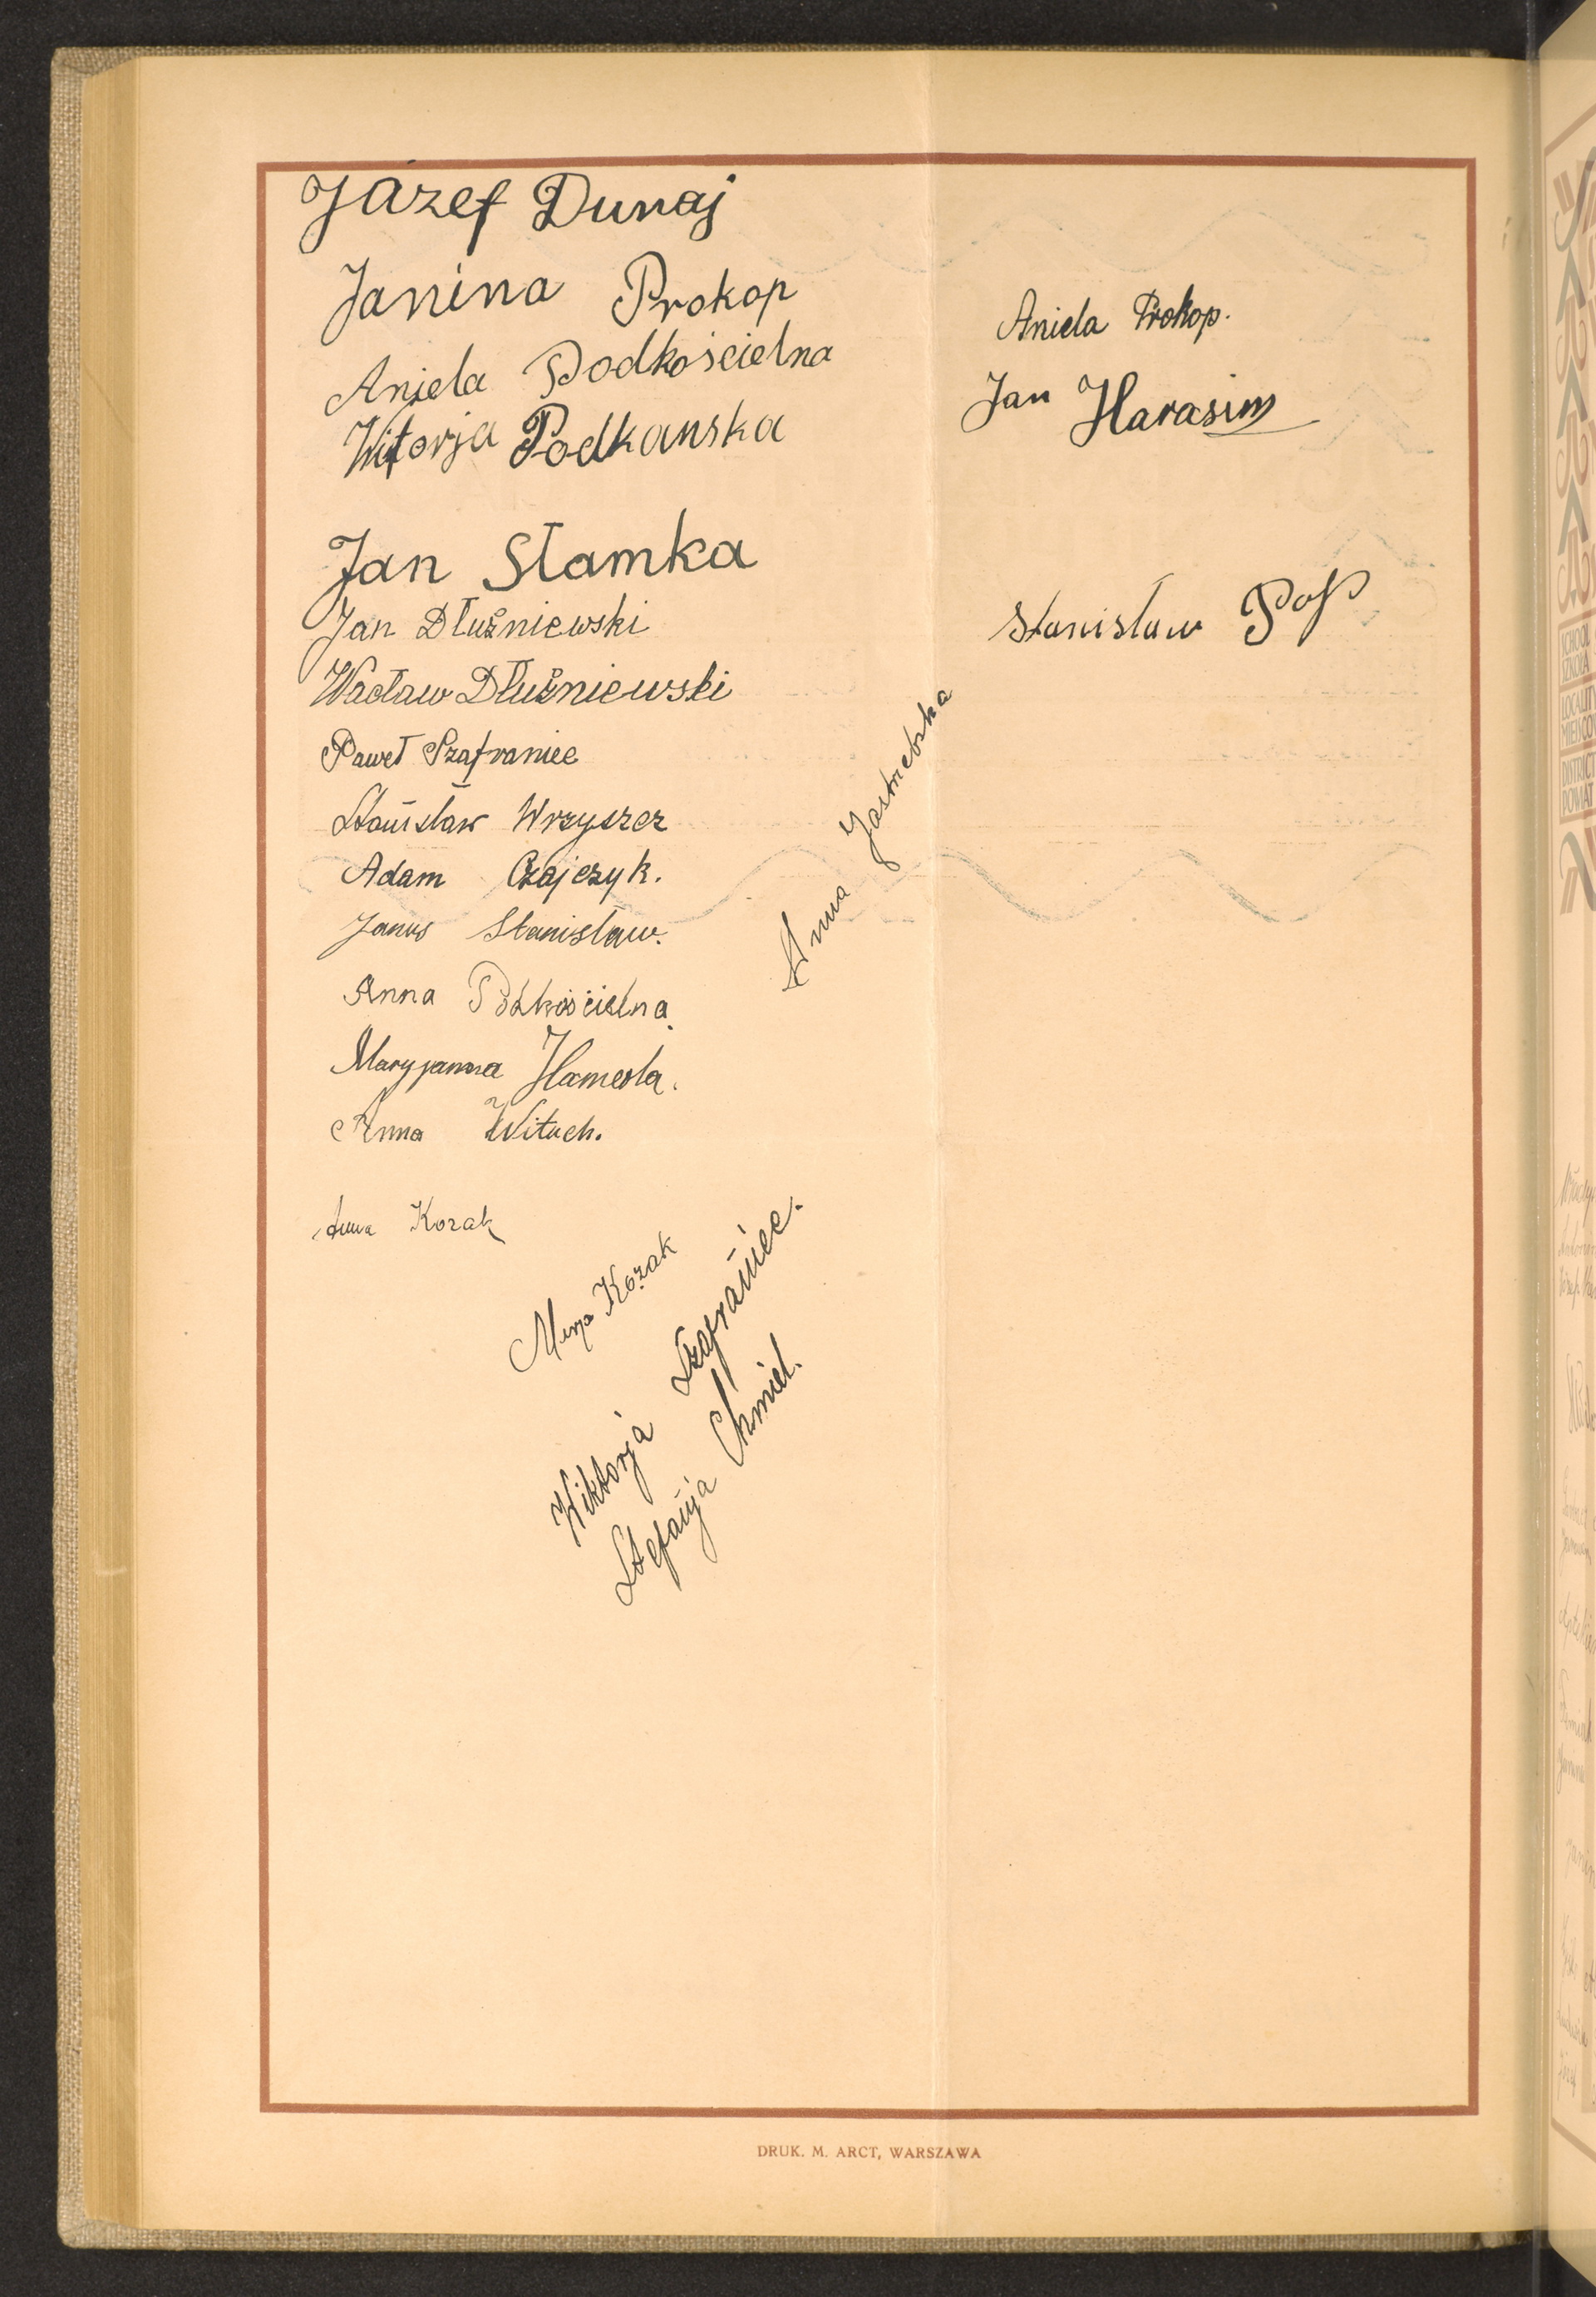 Józef Dunaj
Janina Prokop
Aniela Podkościelna
Witorja Podkanska
Jan Słamka
Jan Dłużniewski
Wacław Dłużniewski
Paweł Szafraniec
Stanisław Wrzyszcz
Adam Czajczyk.
Janus Stanisław.
Anna Podkościelna
Maryjanna Hamerla.
Anna Wituch.
Anna Kozak
Marja Kozak
Wiktorja Szafraniec.
Stefanja Chmiel.
Anna Jastrzebska
Aniela Prokop.
Jan Harasim
Stanisław Pop
DRUK. M. ARCT, WARSZAWA
SCHOOL
SZKOŁA
LOCALITY
DISTRICT
POWIAT